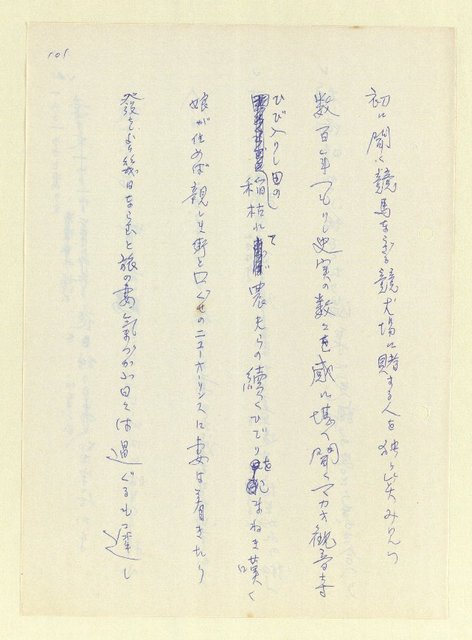 101
初に聞く競馬ならぬ競犬場に賭する人を独り笑みゐつ
数百年つもりし史実の数々を感に堪へ聞くマカオ観音寺
ひび入りし田の稲枯れて農夫らの續くひでりをまねき嘆く
娘が住めば親しき街と口ぐせのニューオーリンスに妻は着きたり
發ちより幾日ならむと旅の妻氣づかふ日々は過ぐるも遅し